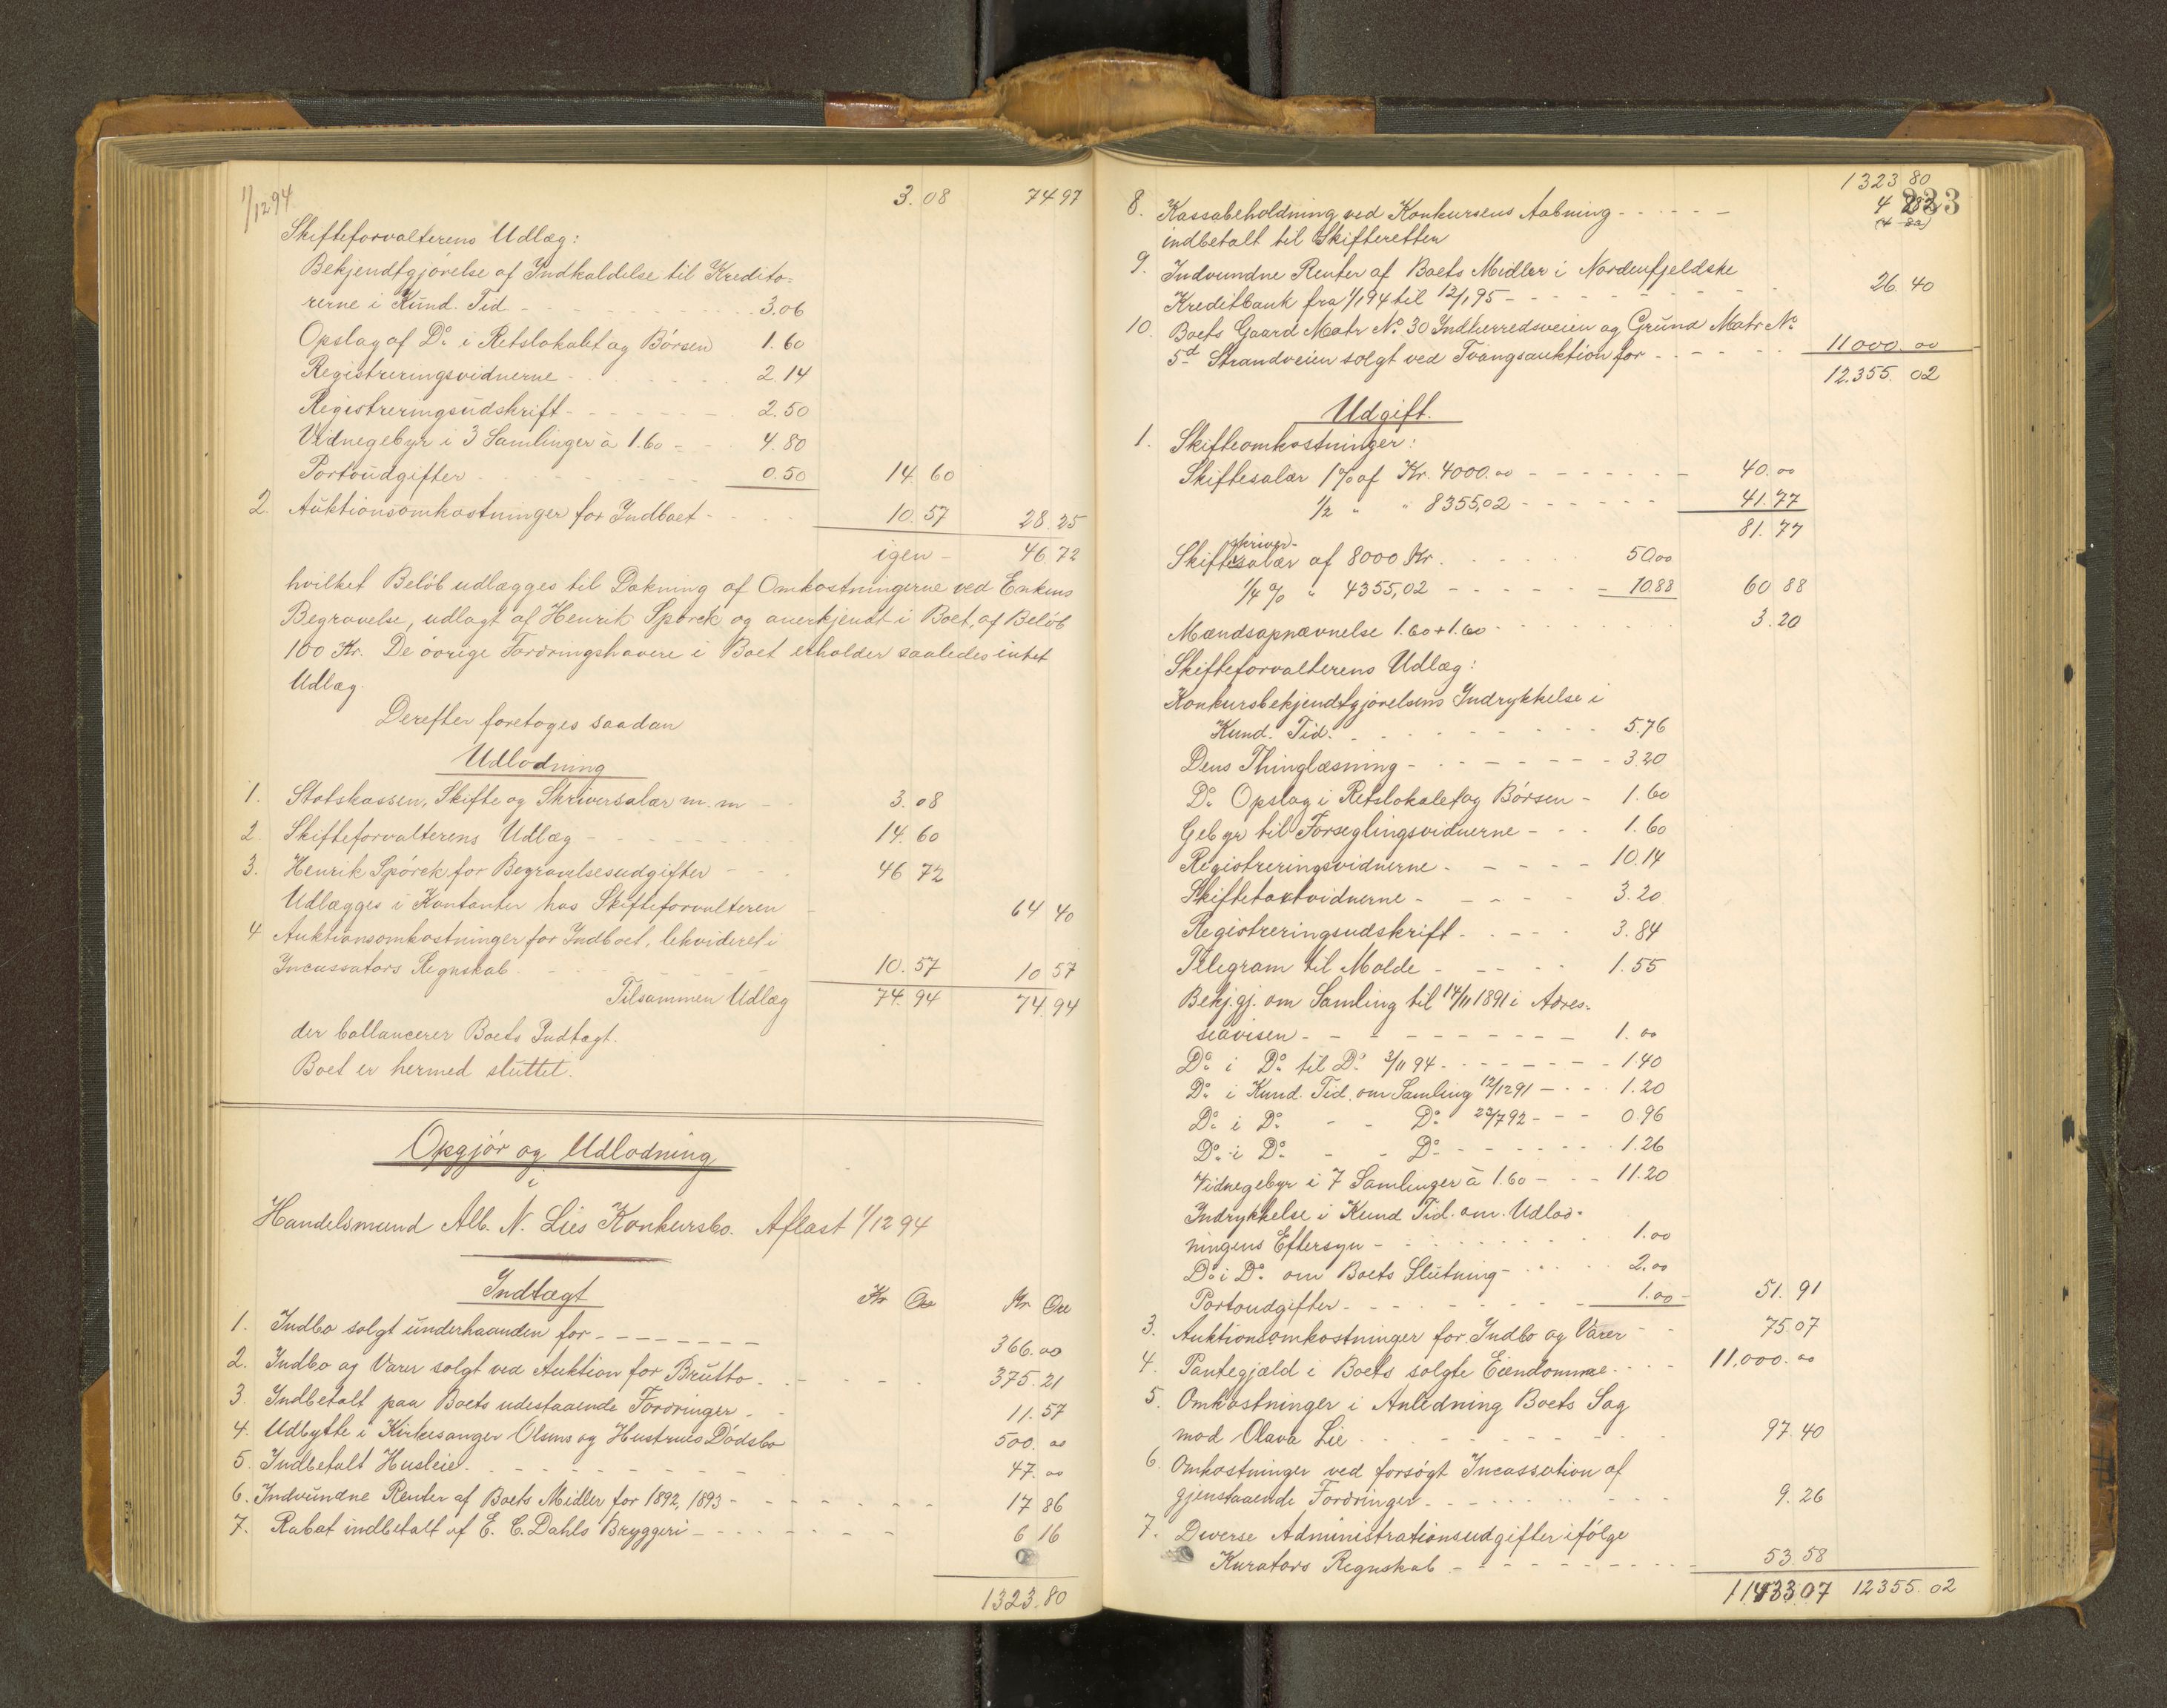 1/12 94. 3.08 74 97
Skifteforvalterens Udlæg:
Bekjendtgjørelse af Indkaldelse til Kredito-
rerne i Kund. Tid - 3.06
Opslag af Do i Retslokalet og Börsen 1.60
Registreringsvidnerne - 2.14
Registreringsudskrift - 2.50
Vidnegebyr i 3 Samlinger à 1.60 - 4.80
Portoudgifter 0.50 14.60
2. Auktionsomkostninger for Indboet - 10.57 28.25
igen - 46.72
hvilket Belöb udlægges til Dækning af Omkostningerne ved Enkens
Begravelse, udlagt af Henrik Spörck og anerkjendt i Boet, af Belöb
100 Kr. De övrige Fordringshavere i Boet erholder saaledes intet
Udlæg.
Derefter foretoges saadan
Udlodning
1. Statskassen, Skifte og Skriversalær m.m - 3.08
2. Skifteforvalterens Udlæg - 14.60
3. Henrik Spörck for Begravelsesudgifter - 46 72
Udlægges i Kontanter hos Skifteforvalteren 64 40
4 Auktionsomkostninger for Indboet, likvideret i
Incassators Regnskab. 10.57 10 57
Tilsammen Udlæg 74.94 74.94
der ballancerer Boets Indtægt.
Boet er hermed sluttet.
Opgjör og Udlodning
i
Handelsmand Alb. N. Lies Konkursbo. Aflæst 1/12 94
Indtægt Kr Öre Kr. Öre
1. Indbo solgt underhaanden for - 366.00
2. Indbo og Varer solgt ved Auktion for Brutto - 375.21
3. Indbetalt paa Boets udestaaende Fordringer - 11.57
4. Udbytte i Kirkesanger Olsens og Hustrues Dödsbo 500.00
5. Indbetalt Husleie - 47.00
6. Indvundne Renter af Boets Midler for 1892, 1893 - 17 86
7. Rabat indbetalt af E. C. Dahls Bryggeri - 6 16
1323.80
1323 80
233
8. Kassabeholdning ved Konkursens Aabning - 4 82
indbetalt til Skifteretten (4 82)
9. Indvundne Renter af Boets Midler i Nordenfjeldske
Kreditbank fra 1/1 94 til 12/1 95 - 26.40
10. Boets Gaard Matr No. 30 Indherredsveien og Grund Matr No.
5d Strandveien solgt ved Tvangsauktion for - 11000.00
12.355.02
Udgift.
1. Skifteomkostninger:
Skiftesalær 1% af Kr. 4000.00 - 40.00
1/2 " " 8355,02 - 41.77
81.77
skriver-
Skiftesalær af 8000 Kr. 50.00
1/4 % " 4355,02 - 10.88 60 88
Mændsopnævnelse 1.60 + 1.60 - 3.20
Skifteforvalterens Udlæg:
Konkursbekjendtgjørelsens Indrykkelse i
Kund. Tid. - 5.76
Dens Thinglæsning - 3.20
Do Opslag i Retslokalet og Börsen - 1.60
Gebyr til Forseglingsvidnerne - 1.60
Registreringsvidnerne - 10.14
Skiftetaxtvidnerne - 3.20
Registreringsudskrift - 3.84
Telegram til Molde - 1.55
Bekj.gj. om Samling til 14/11 1891 i Adres-
seavisen - 1.00
Do i Do til Do 3/11 94 - 1.40
Do i Kund. Tid. om Samling 12/12 91 - 1.20
Do i Do - - Do 23/7 92 - 0.96
Do i Do - - Do - 1.26
Vidnegebyr i 7 Samlinger à 1.60 - 11.20
Indrykkelse i Kund Tid. om Udlod-
ningens Eftersyn - 1.00
Do i Do om Boets Slutning - 2.00
Portoudgifter - 1.00 - 51.91
3. Auktionsomkostninger for Indbo og Varer - 75.07
4. Pantegjæld i Boets solgte Eiendomme - 11.000.00
5. Omkostninger i Anledning Boets Sag
mod Olava Lie - 97.40
6. Omkostninger ved forsögt Incassation af
gjenstaaende Fordringer - 9.26
7. Diverse Administrationsudgifter ifölge
Kurators Regnskab - 53.58
11433.07 12355.02